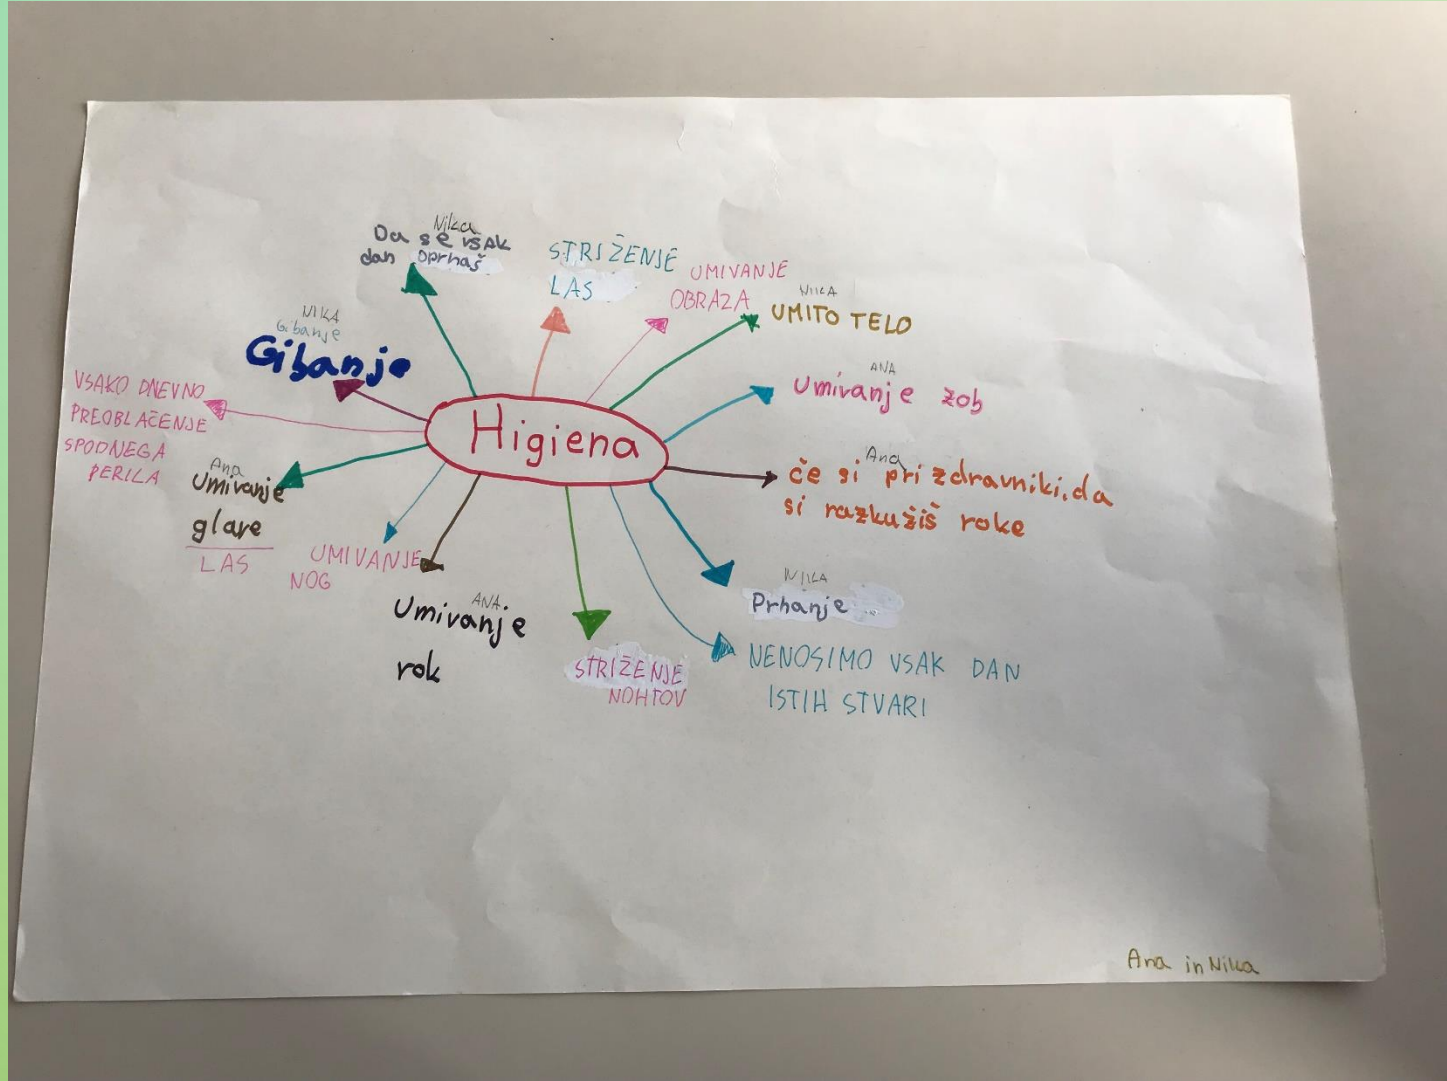 Higiena
Nika
Da se vsak
dan oprhaš
STRIŽENJE
LAS
UMIVANJE
OBRAZA
NIKA
UMITO TELO
ANA
Umivanje zob
Ana
če si pri zdravniki, da
si razkužiš roke
NIKA
Prhanje
NENOSIMO VSAK DAN
ISTIH STVARI
STRIŽENJE
NOHTOV
ANA
Umivanje
rok
UMIVANJE
NOG
Ana
Umivanje
glave
LAS
VSAKO DNEVNO
PREOBLAČENJE
SPODNEGA
PERILA
NIKA
Gibanje
Gibanje
Ana in Nika